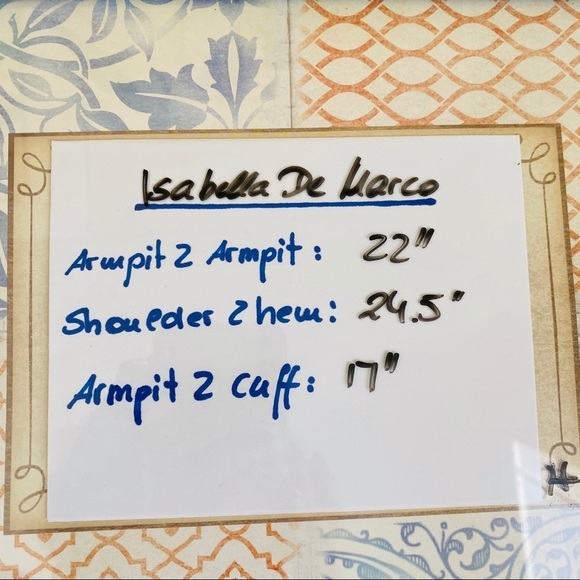 Isabella De Marco
Armpit 2 Armpit: 22"
Shoulder 2 hem: 24.5"
Armpit 2 Cuff: 17"